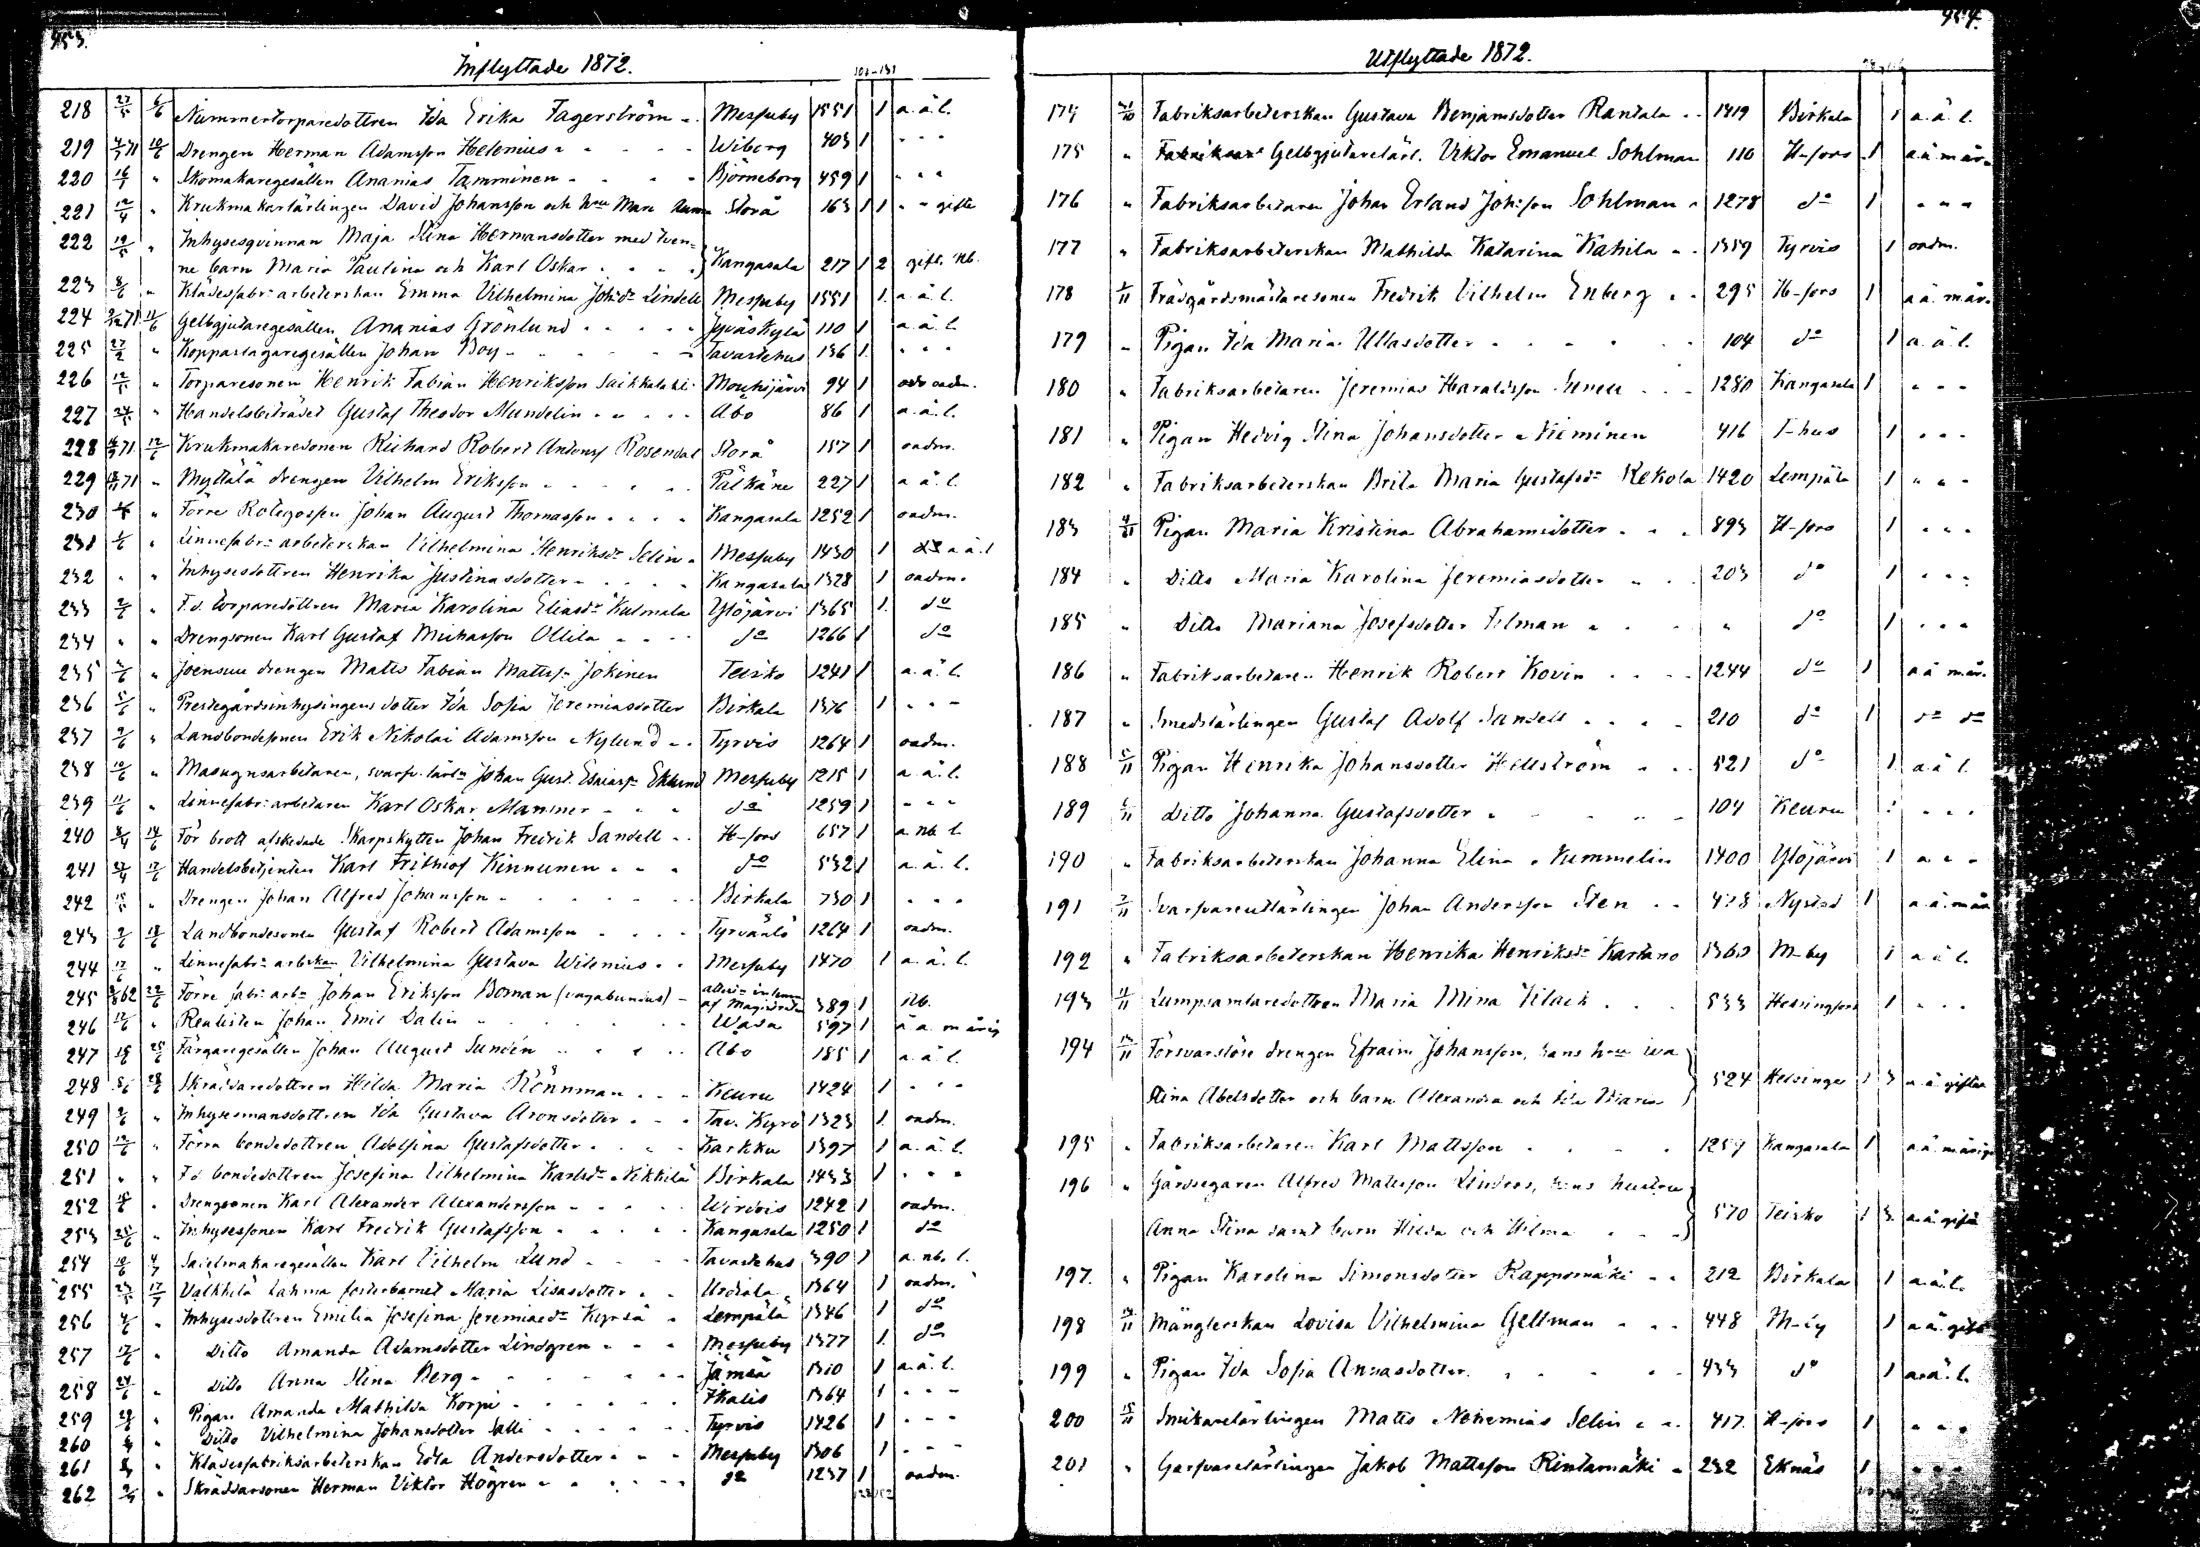 453.
Inflyttade 1872.
218 27/5 6/6 Nummertorparedottren Ida Erika Fagerström Messuby 1551 1 a.ä.l.
219 71 10/6 Drengen Herman Adamsson Helenius Wiborg 403 1 " " "
220 16/5 " Skomakaregesällen Ananias Tamminen Björneborg 459 1 " " "
221 12/4 " Krukmakarlärlingen David Johansson och hru Mari Storå 163 1 1 " " gifte
222 19/5 " Inhysesqvinnan Maja Stina Hermansdotter med tven-
ne barn Maria Paulina och Karl Oskar Kangasala 217 1 2 gift. nb.
223 8/6 " Klädesfabr: arbeterskan Emma Vilhelmina Joh:dr Lindell Messuby 1551 1. a.ä.l.
224 71 11/6 Gelbgjutaregesällen Ananias Grönlund Jyväskylä 110 1 a.ä.l.
225 27/2 " Kopparslagaregesällen Johan Boy Tavastehus 136 1 " " "
226 12/5 " Torparesonen Henrik Fabian Henriksson Saikkala Mouhijärvi 94 1 oadm.
227 24/5 " Handelsbiträdet Gustaf Theodor Mundelin Åbo 86 1 a.ä.l.
228 71 12/6 Krukmakaresonen Richard Robert Antonsf Rosendal Storå 157 1 oadm.
229 71 " Myttälä drengen Vilhelm Eriksson Pälkäne 227 1 a.ä.l.
230 " Förre Rotegossen Johan August Thomasson Kangasala 1252 1 oadm.
231 1/6 " Linnefabr: arbeterskan Vilhelmina Henriksdr Selin Messuby 1430 1 a.ä.l
232 " " Inhysesdottren Henrika Justinasdotter Kangasala 1328 1 oadm.
233 2/6 " F.d. torparedottren Maria Karolina Eliasdr Kulmala Ylöjärvi 1365 1. do
234 " " Drengsonen Karl Gustaf Michasson Ollila do 1266 1 do
235 " Joensuu drengen Matts Fabian Mattsf: Jokinen Teisko 1241 1 a.ä.l.
236 5/6 " Prestegårdsinhysingens dotter Ida Sofia Jeremiasdotter Birkala 1376 1 " " "
237 9/6 " Landbondesonen Erik Nikolai Adamsson Nylund Tyrvis 1264 1 oadm.
238 10/6 " Masugnsarbetaren, svarfv. lärl: Johan Gust. Esaiasf: Eklund Messuby 1215 1 a.ä.l.
239 11/6 " Linnefabr: arbetaren Karl Oskar Manner do 1259 1 " " "
240 14/6 För brott afskedade Skarpskytten Johan Fredrik Sandell H-fors 657 1 a. nb. l.
241 17/6 Handelsbetjenten Karl Frithiof Kinnunen do 532 1 a.ä.l.
242 15/5 " Drengen Johan Alfred Johansson Birkala 730 1 " " "
243 9/6 18/6 Landbondesonen Gustaf Robert Adamsson Tyrväntö 1264 1 oadm.
244 17/6 " Linnefabr: arb:skan Vilhelmina Gustava Wilenius Messuby 1470 1 a.ä.l.
245 62 22/6 Förre fabr: arb: Johan Eriksson Boman (vagabunius) af Magistraten 389 1 nb.
246 12/6 " Realisten Johan Emil Dalin Wasa 597 1 ä.a. m årig
247 25/6 Färgaregesällen Johan August Sundén Åbo 185 1 a.ä.l.
248 28/6 Skräddaredottren Hilda Maria Rönnman Keuru 1424 1 " " "
249 2/6 " Inhysesmansdottren Ida Gustava Aronsdotter Tav. Kyro 1323 1. oadm.
250 12/6 " Förra bondedottren Adolfina Gustafsdotter Karkku 1397 1 a.ä.l.
251 " " F.d bondedottren Josefina Vilhelmina Karlsdr Nikkilä Birkala 1433 1 " " "
252 " Drengsonen Karl Alexander Alexandersson Wirdois 1242 1 oadm.
253 25/6 " Inhysessonen Karl Fredrik Gustafsson Kangasala 1250 1 do
254 10/6 Sadelmakaregesällen Karl Vilhelm Lund Tavastehus 390 1 a. nb. l.
255 17/7 Välkkilä Lahma fosterbarnet Maria Lisasdotter Urdiala 1364 1 oadm.
256 " Inhysesdottren Emilia Josefina Jeremiaedr Kyrsä Lempälä 1346 1 do
257 17/6 " Ditto Amanda Adamsdotter Lindgren Messuby 1377 1. do
258 24/6 " Ditto Anna Stina Berg Jämsä 1310 1 a.ä.l.
259 28/6 " Pigan Amanda Mathilda Korpi Ikalis 1364 1 " " "
260 " Ditto Vilhelmina Johansdotter Salli Tyrvis 1426 1 " " "
261 " Klädesfabriksarbeterskan Edla Andersdotter Messuby 1306 1 " " "
262 " Skräddarsonen Herman Viktor Högren do 1237 1 oadm.
454.
Utflyttade 1872.
174 31/10 Fabriksarbeterskan Gustava Benjamsdotter Rantala 1419 Birkala 1 a.ä.l.
175 " Gelbgjutarelärl. Viktor Emanuel Sohlman 110 H-fors 1 a.ä. m år.
176 " Fabriksarbetaren Johan Erland Joh:son Sohlman 1278 do 1 " " "
177 " Fabriksarbeterskan Mathilda Katarina Kahila 1359 Tyrvis 1 oadm.
178 1/11 Trädgårdsmästaresonen Fredrik Vilhelm Enberg 295 H-fors 1 a.ä. m år.
179 " Pigan Ida Maria Ullasdotter 104 do 1 a.ä.l.
180 " Fabriksarbetaren Jeremias Haraldsson 1280 Kangasala 1 " " "
181 " Pigan Hedvig Stina Johansdotter Nieminen 416 T-hus 1 " " "
182 " Fabriksarbeterskan Brita Maria Gustafsdr Kekola 1420 Lempälä 1 " " "
183 4/11 Pigan Maria Kristina Abrahamsdotter 893 H-fors 1 " " "
184 " Ditto Maria Karolina Jeremiasdotter 203 do 1 " " "
185 " Ditto Mariana Josefsdotter Filman " do 1 " " "
186 " Fabriksarbetaren Henrik Robert Kovin 1244 do 1 a.ä. m år.
187 " Smedslärlingen Gustaf Adolf Sandell 210 do 1 do do
188 5/11 Pigan Henrika Johansdotter Hellström 521 do 1 a.ä.l.
189 6/11 Ditto Johanna Gustafsdotter 104 Keuru 1 " " "
190 " Fabriksarbeterskan Johanna Elina Kummelin 1400 Ylöjärvi 1 " " "
191 7/11 Svarfvarelärlingen Johan Andersson Sten 478 Nystad 1 a.ä. m år
192 " Fabriksarbeterskan Henrika Henriksdr Kartano 1360 M-by 1 a.ä.l.
193 11/11 Lumpsamlaredottren Maria Mina Vilack 533 Helsingfors 1 " " "
194 Försvarslöse drengen Efraim Johansson, hans hru Eva
Stina Abelsdotter och barn Alexandra och Ida Maria 524 Helsinge 1 3 a.ä. gifta
195 " Fabriksarbetaren Karl Mattsson 1259 Kangasala 1 a.ä. m årig
196 " Gårdsegaren Alfred Matsson Lindroos, hans hustru
Anna Stina samt barn Hilda och Hilma 570 Teisko 1 3 a.ä. gifta
197. " Pigan Karolina Simonsdotter Rappumäki 212 Birkala 1 a.ä.l.
198 14/11 Månglerskan Lovisa Vilhelmina Gellman 448 M-by 1 a.ä. gift
199 " Pigan Ida Sofia Annasdotter 433 do 1 a.ä.l.
200 15/11 Snikarelärlingen Matts Nehemias Selin 417. H-fors 1 " " "
201 " Garfvarelärlingen Jakob Mattsson Rintamäki 232 Eknäs 1 " " "